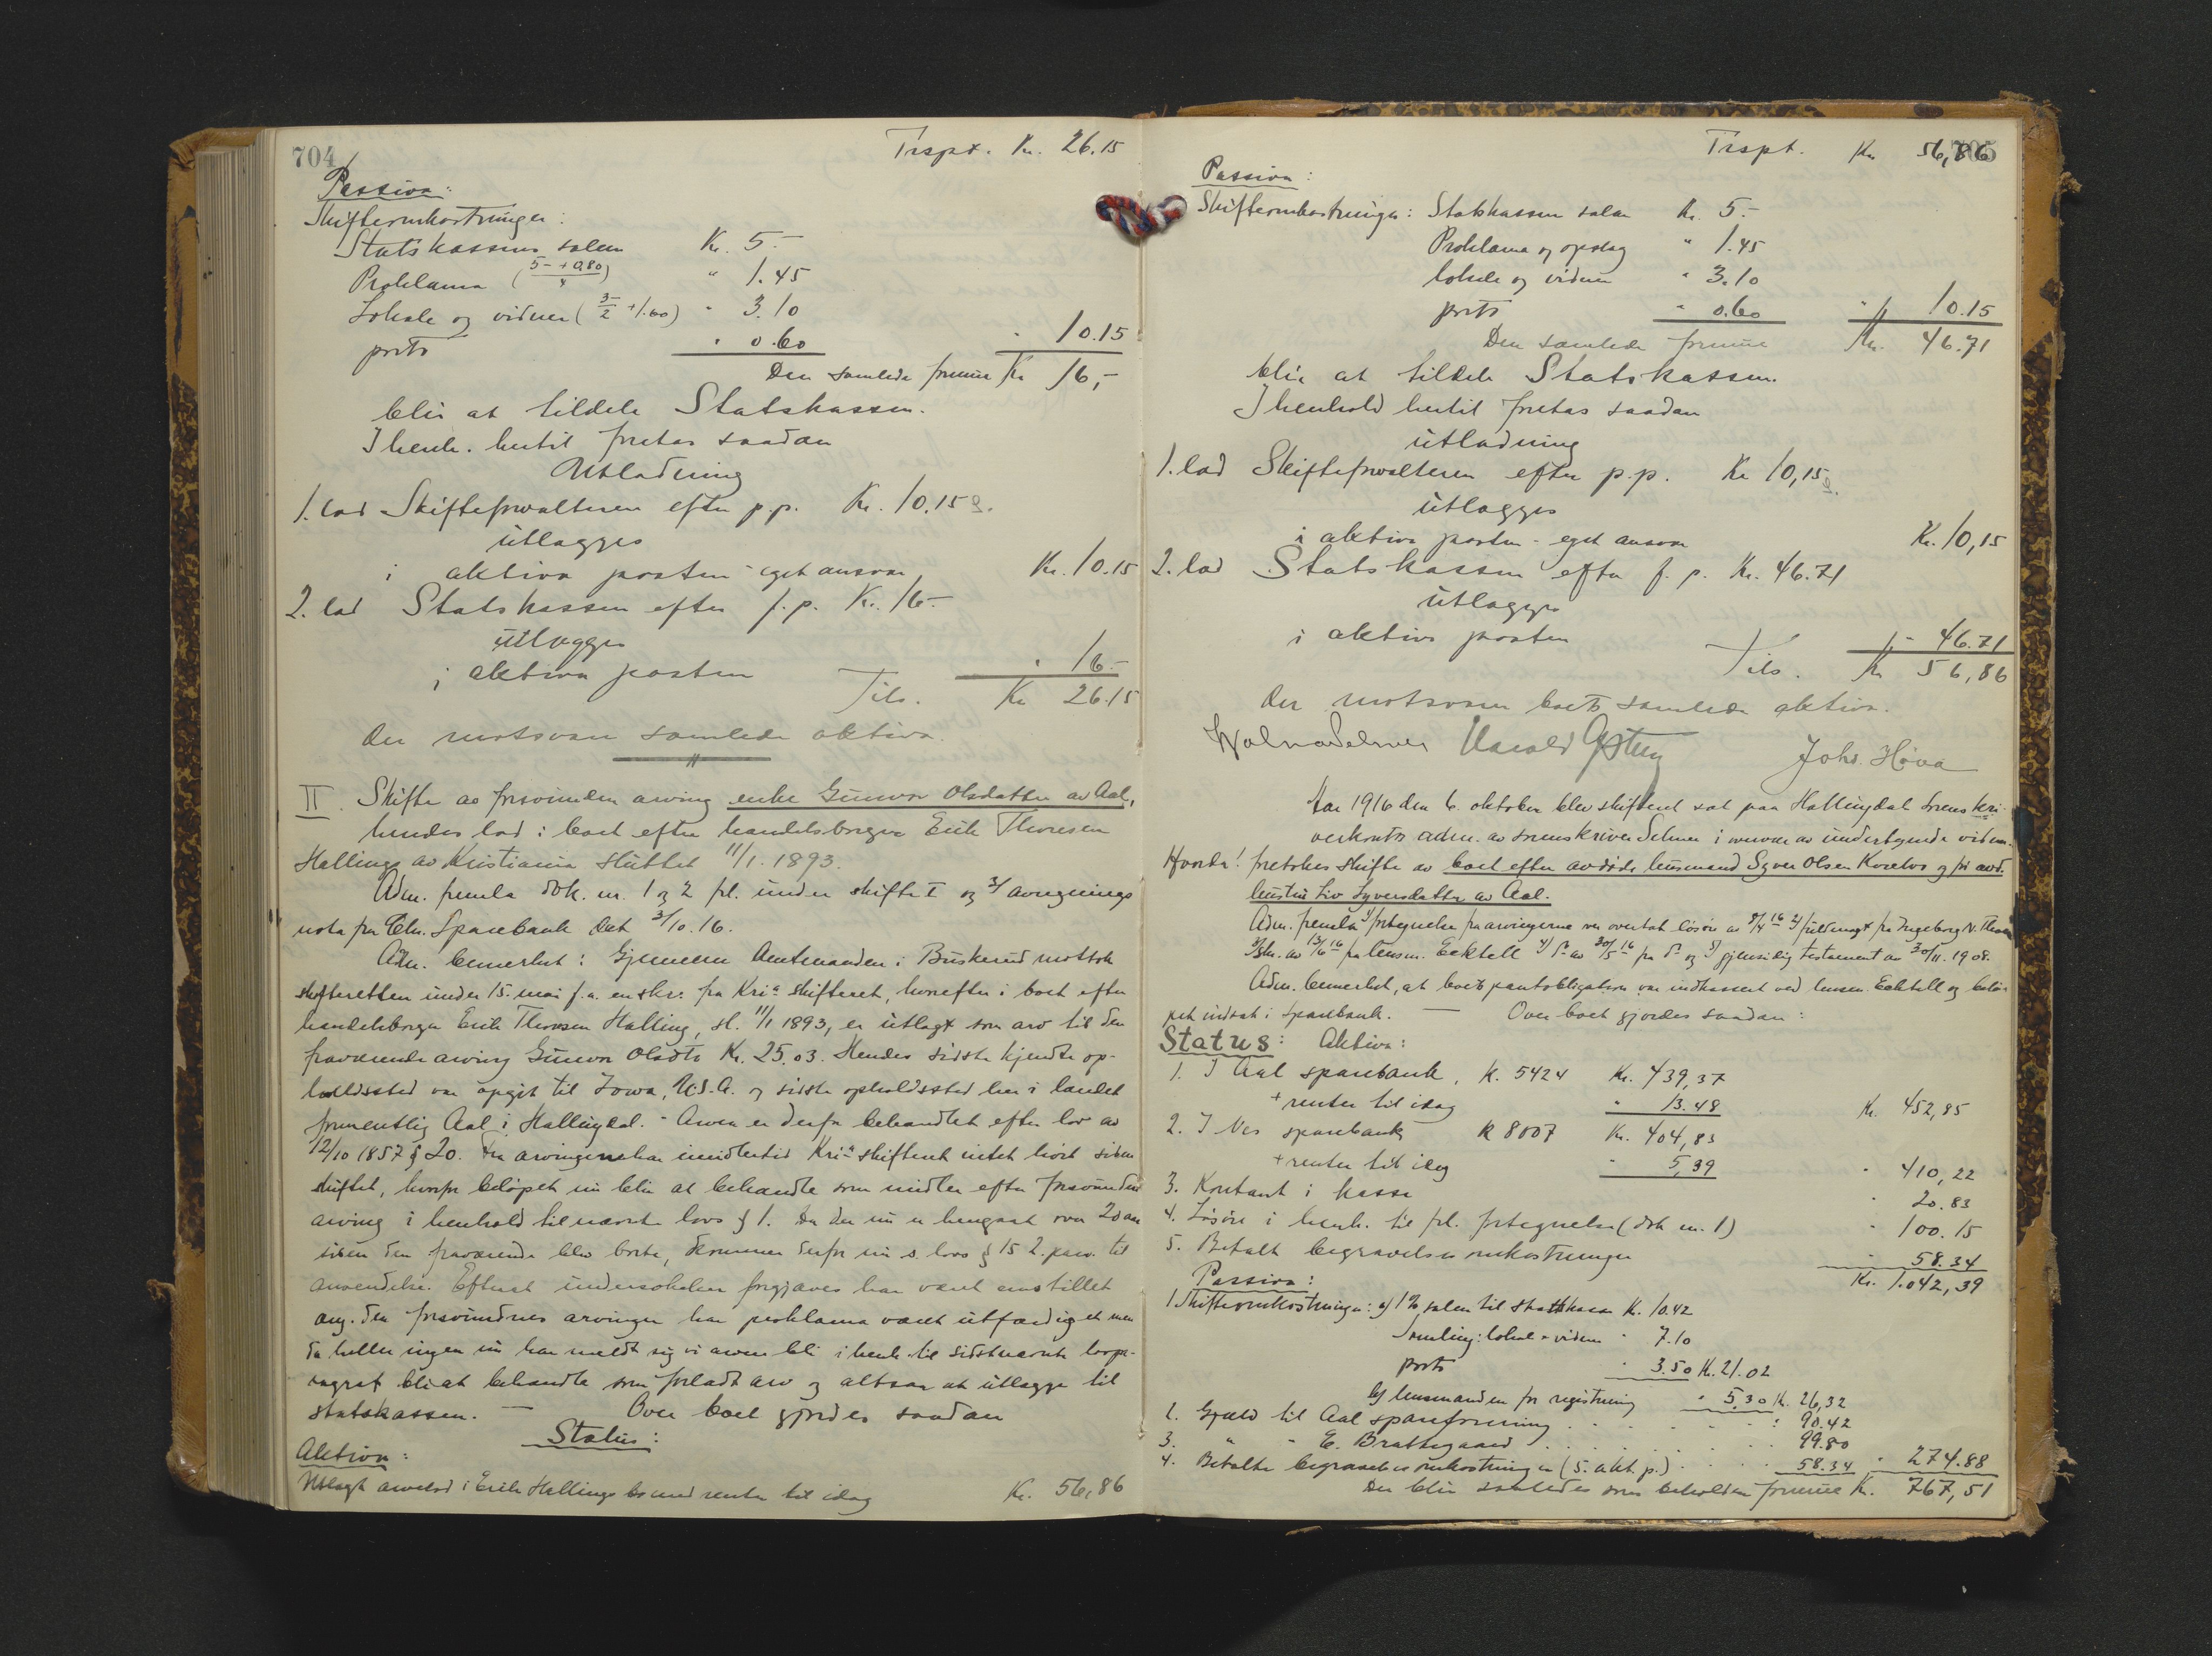 704
Trspt. Kr. 26.15
Passiva:
Skifteomkostninger:
Statskassens salær Kr. 5.-
Proklama (5- + 0,80 / 4) " 1.45
Lokale og vidner (3- / 2 + 1.60) " 3.10
porto " 0.60 " 10.15
Den samlede formue Kr 16,-
blir at tildele Statskassen.
I henh. hertil foretas saadan
Utlodning
1. lod Skifteforvalteren efter p.p. Kr. 10.15
utlægges
i aktiva posten - eget ansvar Kr. 10.15
2. lod Statskassen efter f.p. Kr. 16.-
utlægges
i aktiva posten " 16.-
Tils. Kr 26.15
der motsvarer samlede aktiva.
II. Skifte av forsvunden arving enke Gunvor Olsdatter av Aal,
hendes lod i boet efter handelsborger Erik Thoresen
Halling av Kristiania sluttet 11/1. 1893.
Adm. fremla dok. nr. 1 og 2 frl. under skifte I og 3/ avregnings
nota fra Chr. Sparebank dat 3/10. 16.
Adm. bemerket: Gjennem Amtmanden i Buskerud mottok
skifteretten under 15. mai f.a. en skr. fra Kria skifteret, hvorefter i boet efter
handelsborger Erik Thoresen Halling, sl. 11/1 1893, er utlagt som arv til den
fraværende arving Gunvor Olsdtr Kr. 25.03. Hendes sidste kjendte op-
holdssted var opgit til Iowa, U.S.A. og sidste opholdssted her i landet
formentlig Aal i Hallingdal. - Arven er derfor behandlet efter lov av
12/10 1857 § 20. Fra arvingen har imidlertid Kri.a skifteret intet hørt siden
skiftet, hvorfor beløpet nu blir at behandle som midler efter forsvunden
arving i henhold til nævnte lovs § 1. Da der nu er hengaat over 20 aar
siden den fraværende blev borte, kommer derfor nu s. lovs § 15 2. pass. til
anvendelse. Efterat undersøkelser forgjæves har været anstillet
ang. den forsvundnes arvinger har proklama været utfærdiget men
da heller ingen nu har meldt sig vi arven bli i henh. til sidstnævnte lovpa-
ragraf bli at behandle som forladt arv og altsaa at utlægge til
statskassen. — Over boet gjordes saadan
Status:
Aktiva:
Utlagt arvelod i Erik Hallings bo med renter til idag Kr. 56,86
705
Trspt. Kr 56,86
Passiva:
Skifteomkostninger: Statskassen salær Kr. 5.-
Proklama og opslag " 1.45
lokale og vidner " 3.10
porto " 0.60 " 10.15
Den samlede formue Kr. 46.71
blir at tildele Statskassen.
I henhold hertil foretas saadan
utlodning
1. lod Skifteforvalteren efter p.p. Kr 10,15
utlægges
i aktiva posten - eget ansvar Kr. 10,15
2. lod Statskassen efter f.p. Kr. 46.71
utlægges
i aktiva posten " 46.71
Tils. Kr 56,86
der motsvarer boets samlede aktiva.
Harald Johs. Høva
Aar 1916 den 6. oktober blev skifteret sat paa Hallingdal Sorenskri-
verkontor adm. av sorenskriver Selmer i nærvær av undertegnede vidner.
Hvorda! foretokes skifte av boet efter avdøde husmand Syver Olsen og før avd.
hustru Liv Syversdatter av Aal.
Adm. fremla 1/ fortegnelse fra arvingerne over overtat løsøre av 8/4 16 2/ fuldmagt fra Ingeborg N.
3/ skr. av 13/6 16 fra lensm. Ecktell 4/ do av 30/5 16 fra do og 5/ gjensidig testament av 30/11. 1908.
Adm. bemerket, at boets pantobligation var indkassert ved lensm. Ecktell og belø-
pet indsat i Sparebank. — Over boet gjordes saadan:
Status: Aktiva:
1. I Aal sparebank, K. 5424 Kr. 439,37
+ renter til idag " 13.48 Kr. 452,85
2. I Nes sparebank K 8007 Kr. 404,83
+ renter til idag " 5,39 " 410,22
3. Kontant i kasse " 20.83
4. Løsøre i henh. til frl. fortegnelse (dok nr. 1) " 100.15
5. Betalt begravelsesomkostninger " 58.34
Kr. 1.042,39
Passiva:
1 Skifteomkostninger: a) 1% salær til statskassen K. 10.42
Samling: lokale + vidner " 7.10
porto " 3.50 K. 21.02
b) lensmanden for registrering " 5,30 K. 26,32
2. Gjæld til Aal spareforening " 90.42
3. " - E. Brattegaard 99.80
4. Betalte begravelsesomkostninger (5. akt. p.) 58.34 " 274.88
Der blir saaledes som beholden formue K. 767,51